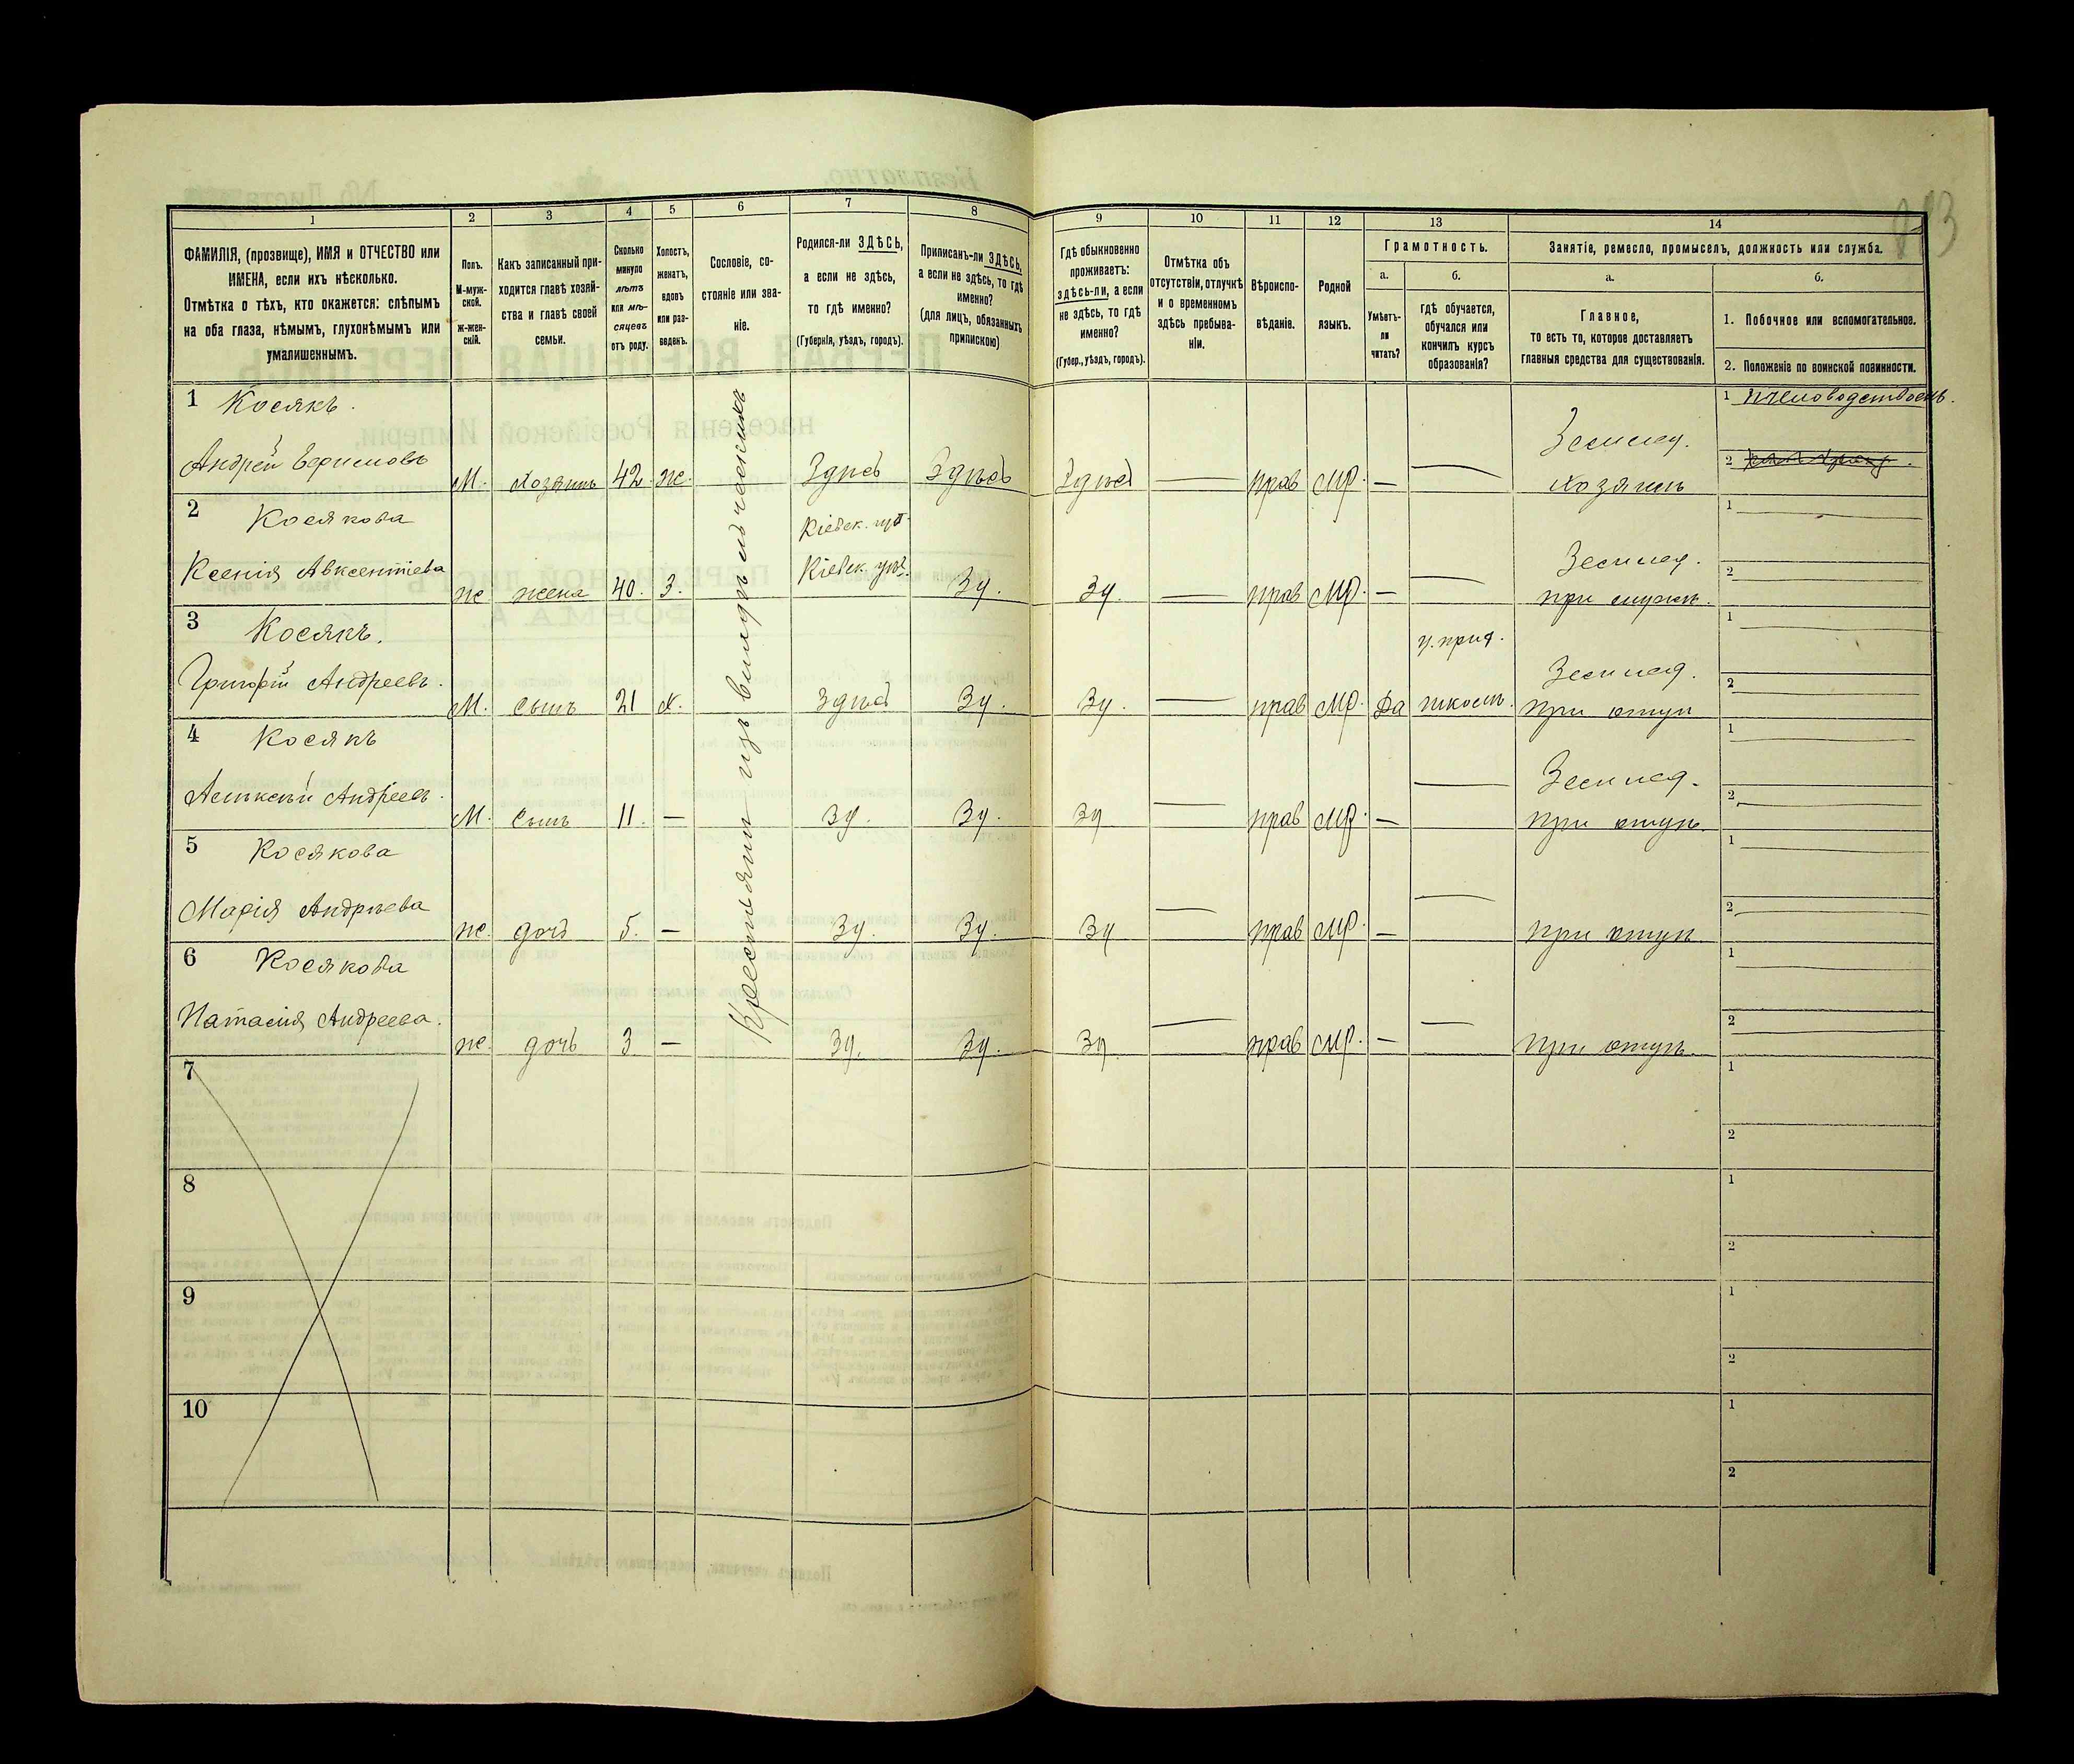 1 2 3 4 5 6 7 8 9 10 11 12 13 14
ФАМИЛІЯ, (прозвище), ИМЯ и ОТЧЕСТВО или
ИМЕНА, если ихъ нѣсколько.
Отмѣтка о тѣхъ, кто окажется: слѣпымъ
на оба глаза, нѣмымъ, глухонѣмымъ или
умалишеннымъ.
Полъ.
М-муж-
ской.
ж-жен-
скій.
Какъ записанный при-
ходится главѣ хозяй-
ства и главѣ своей
семьи.
Сколько
минуло
лѣтъ
или мѣ-
сяцевъ
отъ роду.
Холостъ,
женатъ,
вдовъ
или раз-
веденъ.
Сословіе, со-
стояніе или зва-
ніе.
Родился-ли ЗДѢСЬ,
а если не здѣсь,
то гдѣ именно?
(Губернія, уѣздъ, городъ).
Приписанъ-ли ЗДѢСЬ,
а если не здѣсь, то гдѣ
именно?
(для лицъ, обязанныхъ
припискою)
Гдѣ обыкновенно
проживаетъ:
здѣсь-ли, а если
не здѣсь, то гдѣ
именно?
(Губер., уѣздъ, городъ).
Отмѣтка объ
отсутствіи, отлучкѣ
и о временномъ
здѣсь пребыва-
ніи.
Вѣроиспо-
вѣданіе.
Родной
языкъ.
Грамотность.
а.
Умѣетъ-
ли
читать?
б.
Гдѣ обучается,
обучался или
кончилъ курсъ
образованія?
Занятіе, ремесло, промыселъ, должность или служба.
а.
Главное,
то есть то, которое доставляетъ
главныя средства для существованія.
б.
1. Побочное или вспомогательное.
2. Положеніе по воинской повинности.
Крестьяни изъ владѣльческихъ
1 Косякъ. 1 пчеловодствомъ.
Землед.
Андрей Ефимовъ М. хозяинъ 42 ж. Здѣсь Здѣсь Здѣсь — прав мр. — — хозяинъ 2
2 Косякова Кіевск. губ. 1
Землед.
Ксенія Авксентіева ж жена 40. З. Кіевск. уѣз. Зд. Зд. — прав мр. — — при мужѣ. 2
3 Косякъ. ц. прид. 1
Землед.
Григорій Андреевъ. М. сынъ 21 х. Здѣсь Зд. Зд. — прав мр. Да школѣ. при отцѣ 2
4 Косякъ 1
Землед.
Алексѣй Андреевъ. М. сынъ 11. — Зд. Зд. Зд — прав мр. — — при отцѣ. 2
5 Косякова 1
Марія Андрѣева ж. дочь 5. — Зд. Зд. Зд — прав мр. — — при отцѣ 2
6 Косякова 1
Наталія Андреева. ж. дочь 3 — Зд. Зд. Зд. — прав мр. — — При отцѣ. 2
7 1
2
8 1
2
9 1
2
10 1
2